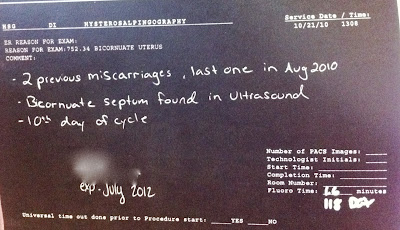 HSG DI HYSTEROSALPINGOGRAPHY
Service Date / Time:
10/21/10 1308
ER REASON FOR EXAM:
REASON FOR EXAM:752.34 BICORNUATE UTERUS
COMMENT:
- 2 previous miscarriages, last one in Aug 2010
- Bicornuate septum found in Ultrasound
- 10th day of cycle
exp - July 2012
Number of PACS Images:
Technologist Initials:
Start Time:
Completion Time:
Room Number:
Fluoro Time: 1.6 minutes
118
Universal time out done prior to Procedure start: ____YES ____NO